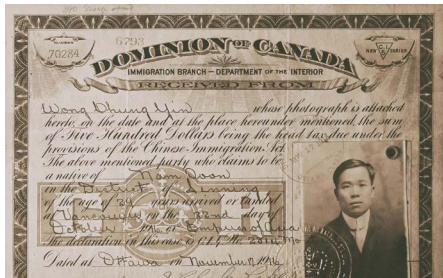 6793
NUMBER
70284
DOMINION OF CANADA
NEW C.I.5 SERIES
IMMIGRATION BRANCH – DEPARTMENT OF THE INTERIOR
RECEIVED FROM
Wong Chung Yin whose photograph is attached
hereto, on the date and at the place hereunder mentioned, the sum
of Five Hundred Dollars being the head tax due under the
provisions of the Chinese Immigration Act.
The above mentioned party who claims to be
a native of
in the District of Sunning
of the age of years arrived or landed
at Vancouver on the 22nd day of
October 1916 ex Empress of Asia
The declaration in this case is C.I.4 No.
Dated at Ottawa on November 17, 1916